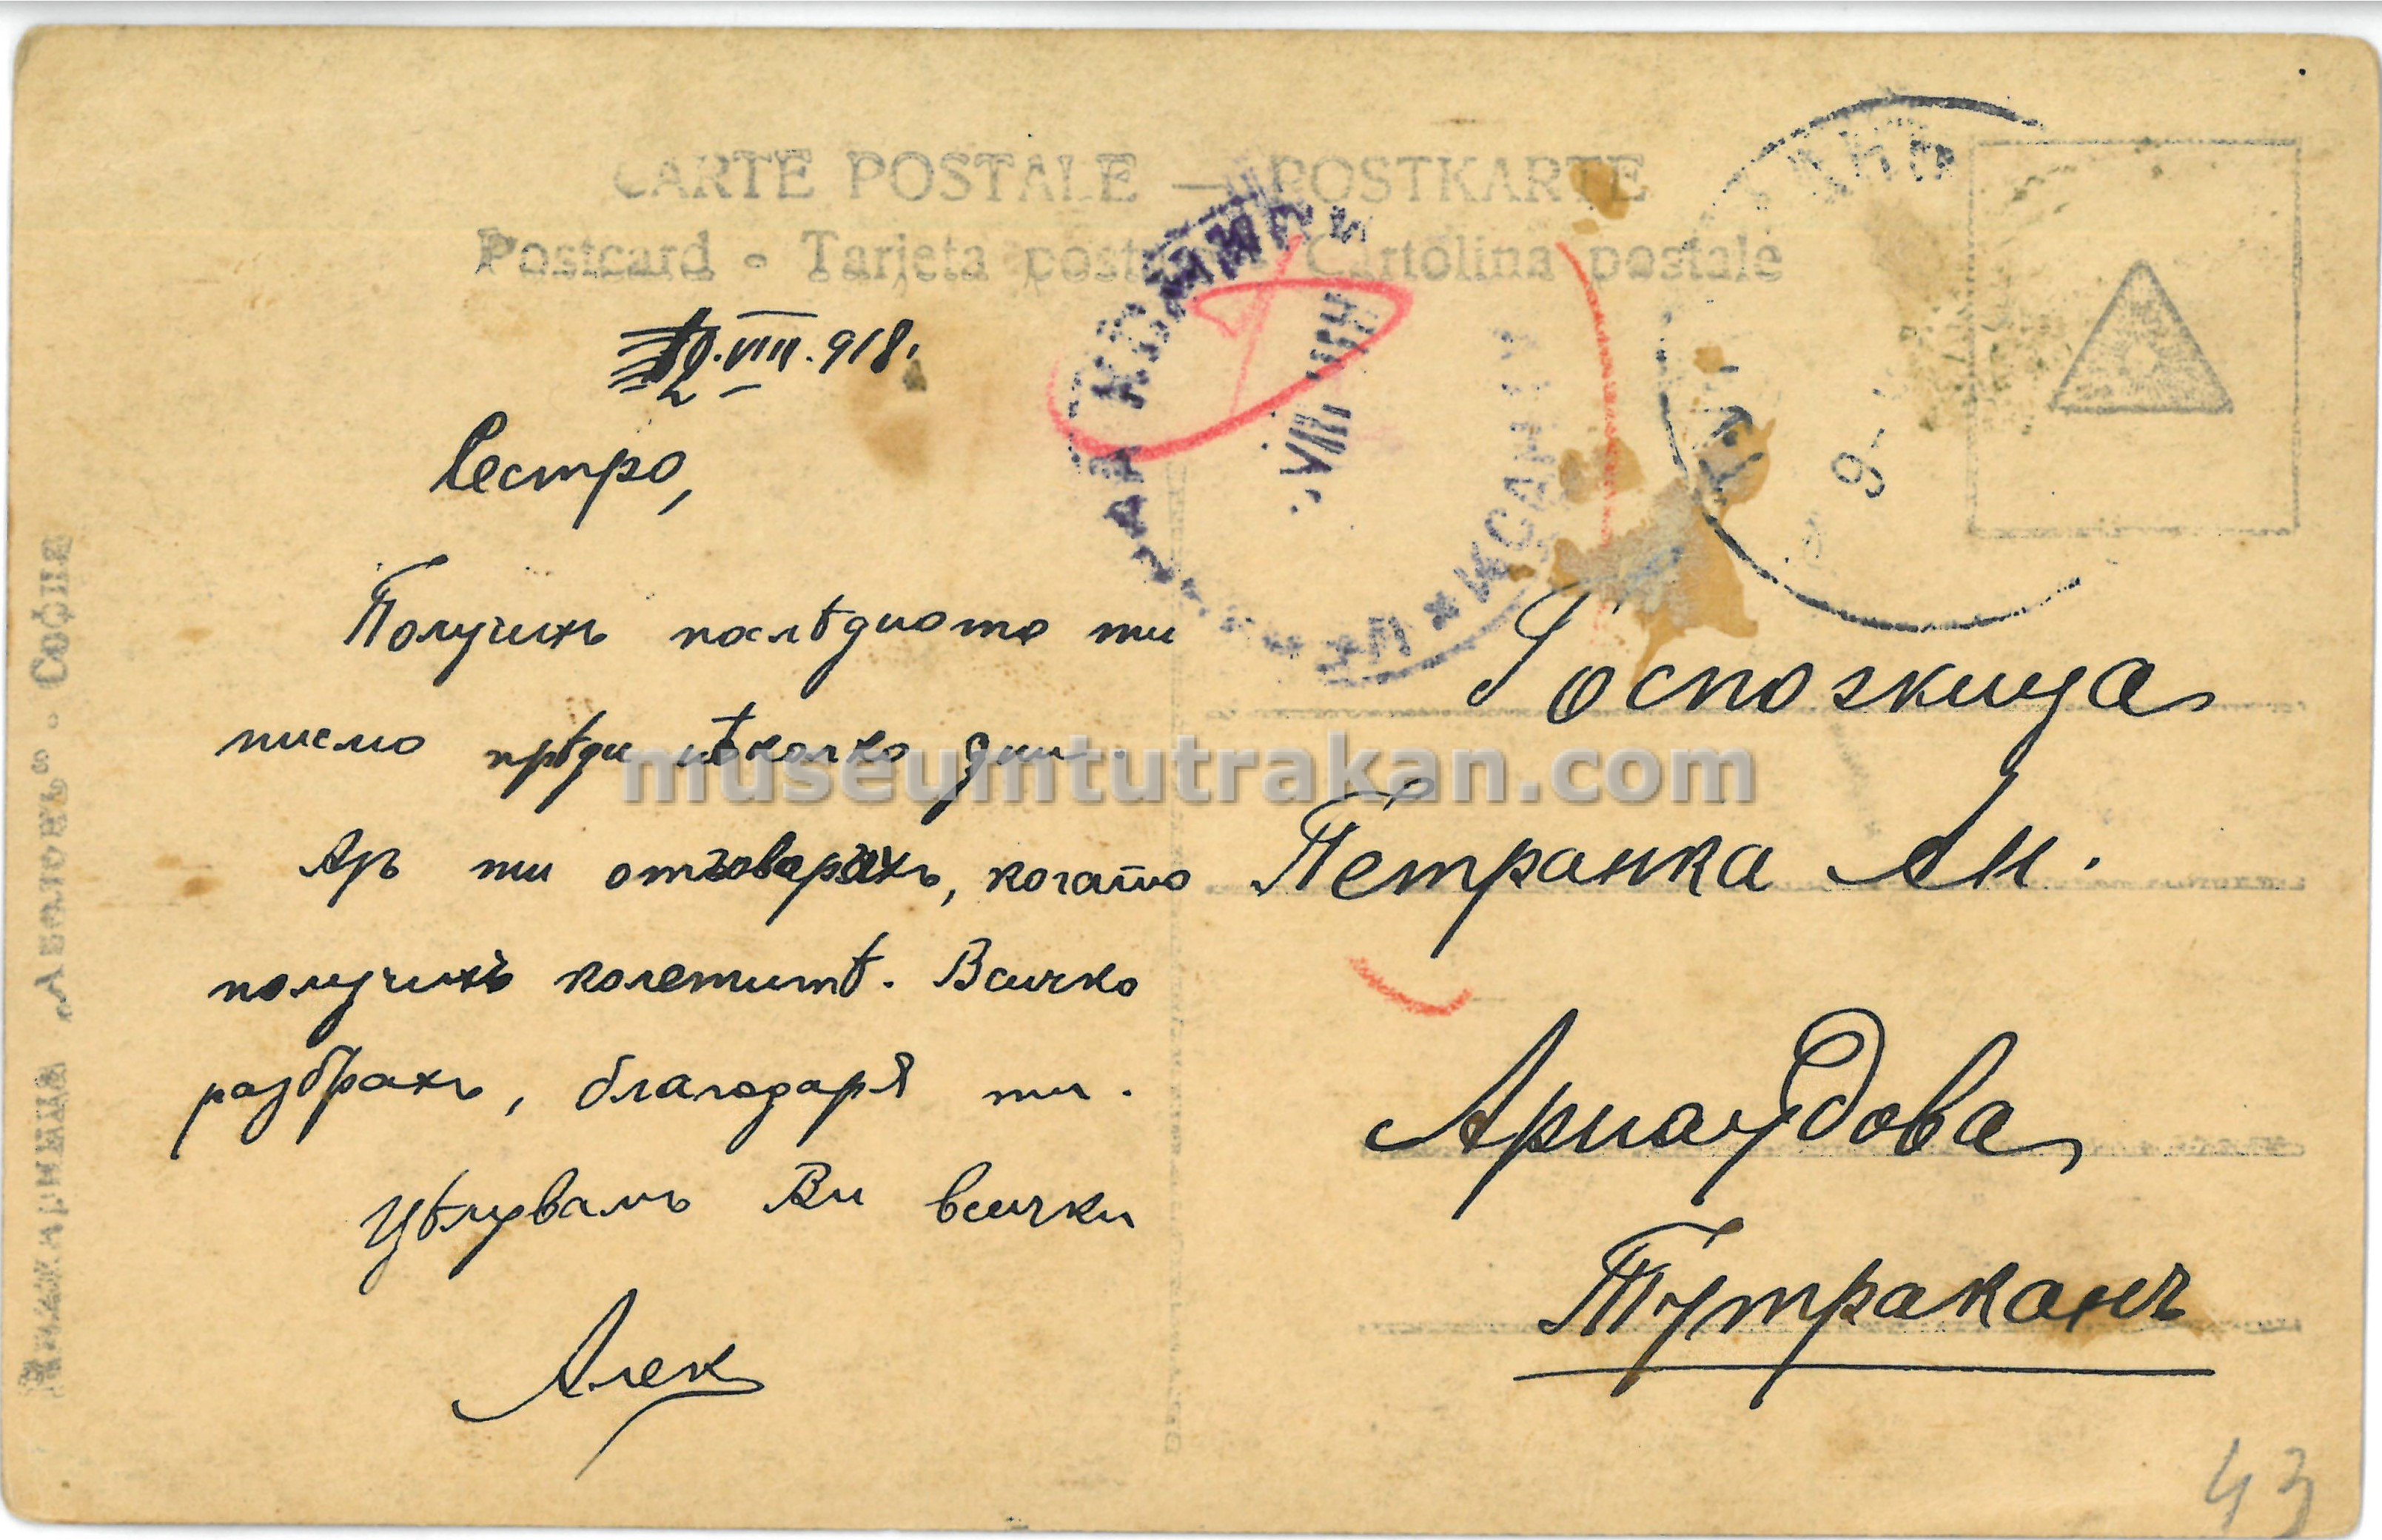 CARTE POSTALE — POSTKARTE
Postcard - Tarjeta postale Cartolina postale
2.VIII.918.
Сестро,
Получихъ послѣдното ти
писмо прѣди нѣколко дни.
Азъ ти отговаряхъ, когато
получихъ колетитѣ. Всичко
разбрахъ, благодаря ти.
Цѣлувамъ Ви всички
Алек
Госпожица
Петранка Ан.
Арнаудова
Тутраканъ
КСАНТИ
VIII
9-
СОФИЯ
museumtutrakan.com
43